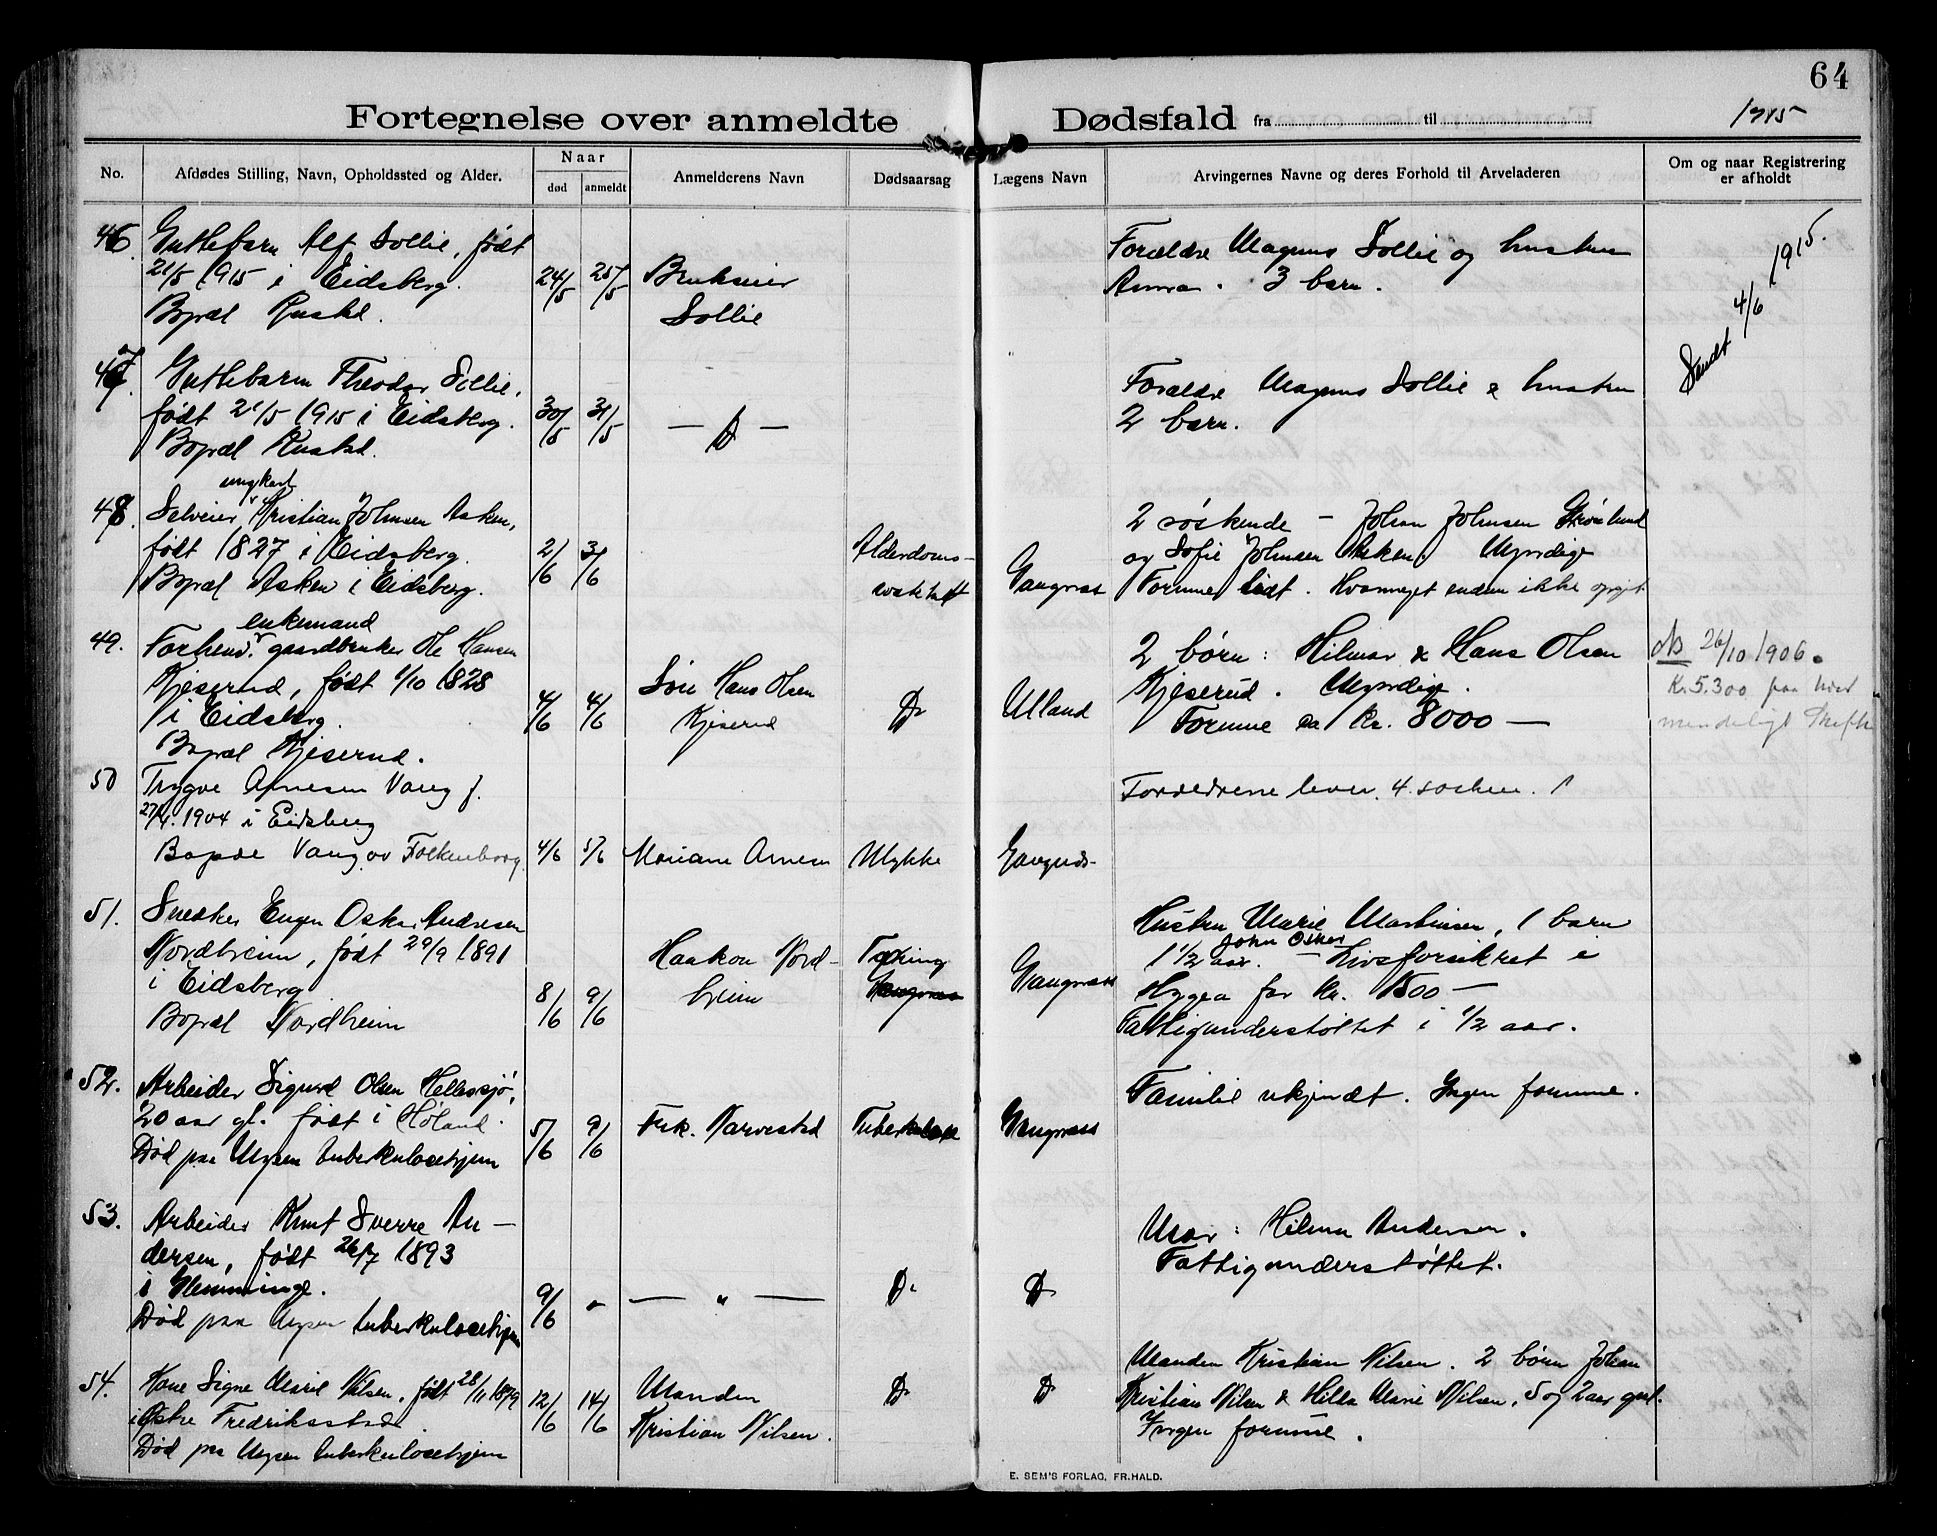 64
Fortegnelse over anmeldte Dødsfald fra til 1915
No.
Afdødes Stilling, Navn, Opholdssted og Alder.
Naar
død
anmeldt
Anmelderens Navn
Dødsaarsag
Lægens Navn
Arvingernes Navne og deres Forhold til Arveladeren
Om og naar Registrering
er afholdt
46.
Guttebarn Alf Sollie, født
21/5 1915 i Eidsberg.
Bopæl Rustad.
24/5
25/5
Brukseier
Sollie
Forældre Magnus Sollie og hustru
Anna. 3 barn.
Sendt 4/6 1915.
47.
Guttebarn Theodor Sollie,
født 21/5 1915 i Eidsberg.
Bopæl Rustad.
30/5
31/5
— D —
Forældre Magnus Sollie & hustru
2 barn.
48.
ungkarl
Selveier Kristian Johnsen Asken,
født 1827 i Eidsberg.
Bopæl Asken i Eidsberg.
2/6
3/6
Alderdoms-
svakhet
Gangnæs
2 søskende – Johan Johnsen
og Sofie Johnsen Asken. Myndige
Formue lidt. Hvormeget endnu ikke opgit.
49.
enkemand
Forhenv. gaardbruker Ole Hansen
Kjeserud, født 1/10 1828
i Eidsberg.
Bopæl Kjeserud.
4/6
4/6
Søn Hans Olsen
Kjeserud
Do
Ulland
2 børn: Hilmar & Hans Olsen
Kjeserud. Myndig.
Formue ca Kr. 8000 —
26/10 1906.
Kr. 5.300 paa hver
mindeligt Skifte
50
Trygve Arnesen Vang f.
27/4. 1904 i Eidsberg
Bopæl Vang av Folkenborg
4/6
5/6
Mariane Arnesen
Ulykke
Gangnæs-
Forældrene lever. 4 søsken.
51.
Snedker Eugen Oskar Andresen
Nordheim, født 29/9 1891
i Eidsberg
Bopæl Nordheim
8/6
9/6
Haakon Nord-
heim
Tæring
Gangnæs
Hustru Marie Martinsen, 1 barn
John Oskar
1 1/2 aar. – Livsforsikret i
Hygea for Kr. 1500 —
Fattigunderstøttet i 1/2 aar.
52.
Arbeider Sigurd Olsen Hellesjø,
20 aar gl. født i Høland.
Død paa Mysen tuberkulosehjem
5/6
9/6
Frk. Narvestad
Tuberkulose
Gangnæs
Familie ukjendt. Ingen formue.
53.
Arbeider Knut Sverre An-
dersen, født 26/7 1893
i Glemminge.
Død paa Mysen tuberkulosehjem
9/6
— " —
Do
Do
Mor: Hilma Andersen.
Fattigunderstøttet.
54.
Kone Signe Marie Nilsen, født 28/11 1879
i Østre Fredrikstad
Død paa Mysen tuberkulosehjem
12/6
14/6
Manden
Kristian Nilsen.
Do
Do
Manden Kristian Nilsen. 2 børn Johan
Kristian Nilsen & Hilda Marie Nilsen, 5 og 2 aar gml.
Ingen formue.
E. SEM'S FORLAG, FR.HALD.